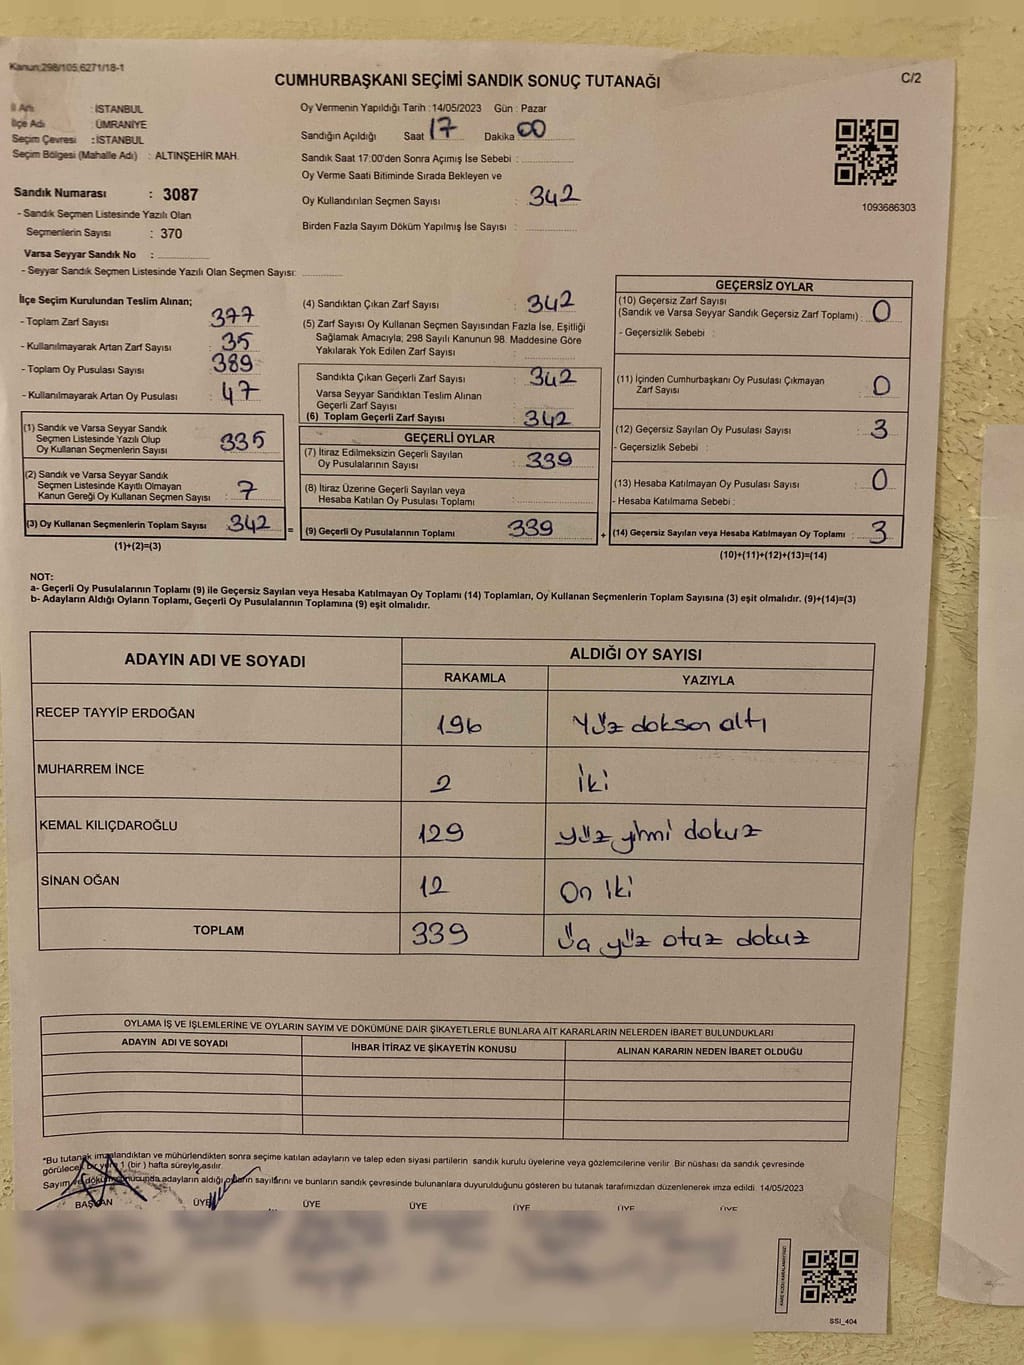 Kanun:298/105,6271/18-1
CUMHURBAŞKANI SEÇİMİ SANDIK SONUÇ TUTANAĞI
C/2
İl Adı : İSTANBUL
İlçe Adı : ÜMRANİYE
Seçim Çevresi : İSTANBUL
Seçim Bölgesi (Mahalle Adı) : ALTINŞEHİR MAH.
Sandık Numarası : 3087
- Sandık Seçmen Listesinde Yazılı Olan
Seçmenlerin Sayısı : 370
Varsa Seyyar Sandık No :
- Seyyar Sandık Seçmen Listesinde Yazılı Olan Seçmen Sayısı:
Oy Vermenin Yapıldığı Tarih :14/05/2023 Gün : Pazar
Sandığın Açıldığı Saat 17 Dakika 00
Sandık Saat 17:00'den Sonra Açımış İse Sebebi :
Oy Verme Saati Bitiminde Sırada Bekleyen ve
Oy Kullandırılan Seçmen Sayısı : 342
Birden Fazla Sayım Döküm Yapılmış İse Sayısı :
1093686303
İlçe Seçim Kurulundan Teslim Alınan;
- Toplam Zarf Sayısı : 377
- Kullanılmayarak Artan Zarf Sayısı : 35
- Toplam Oy Pusulası Sayısı : 389
- Kullanılmayarak Artan Oy Pusulası : 47
(1) Sandık ve Varsa Seyyar Sandık
Seçmen Listesinde Yazılı Olup
Oy Kullanan Seçmenlerin Sayısı : 335
(2) Sandık ve Varsa Seyyar Sandık
Seçmen Listesinde Kayıtlı Olmayan
Kanun Gereği Oy Kullanan Seçmen Sayısı : 7
(3) Oy Kullanan Seçmenlerin Toplam Sayısı : 342 =
(1)+(2)=(3)
(4) Sandıktan Çıkan Zarf Sayısı : 342
(5) Zarf Sayısı Oy Kullanan Seçmen Sayısından Fazla İse, Eşitliği
Sağlamak Amacıyla; 298 Sayılı Kanunun 98. Maddesine Göre
Yakılarak Yok Edilen Zarf Sayısı :
Sandıkta Çıkan Geçerli Zarf Sayısı : 342
Varsa Seyyar Sandıktan Teslim Alınan
Geçerli Zarf Sayısı :
(6) Toplam Geçerli Zarf Sayısı : 342
GEÇERLİ OYLAR
(7) İtiraz Edilmeksizin Geçerli Sayılan
Oy Pusulalarının Sayısı : 339
(8) İtiraz Üzerine Geçerli Sayılan veya
Hesaba Katılan Oy Pusulası Toplamı :
(9) Geçerli Oy Pusulalarının Toplamı : 339 +
GEÇERSİZ OYLAR
(10) Geçersiz Zarf Sayısı
(Sandık ve Varsa Seyyar Sandık Geçersiz Zarf Toplamı) : 0
- Geçersizlik Sebebi :
(11) İçinden Cumhurbaşkanı Oy Pusulası Çıkmayan
Zarf Sayısı : 0
(12) Geçersiz Sayılan Oy Pusulası Sayısı : 3
- Geçersizlik Sebebi :
(13) Hesaba Katılmayan Oy Pusulası Sayısı : 0
- Hesaba Katılmama Sebebi :
(14) Geçersiz Sayılan veya Hesaba Katılmayan Oy Toplamı : 3
(10)+(11)+(12)+(13)=(14)
NOT:
a- Geçerli Oy Pusulalarının Toplamı (9) ile Geçersiz Sayılan veya Hesaba Katılmayan Oy Toplamı (14) Toplamları, Oy Kullanan Seçmenlerin Toplam Sayısına (3) eşit olmalıdır. (9)+(14)=(3)
b- Adayların Aldığı Oyların Toplamı, Geçerli Oy Pusulalarının Toplamına (9) eşit olmalıdır.
ADAYIN ADI VE SOYADI
ALDIĞI OY SAYISI
RAKAMLA YAZIYLA
RECEP TAYYİP ERDOĞAN 196 Yüz doksan altı
MUHARREM İNCE 2 İki
KEMAL KILIÇDAROĞLU 129 yüz yirmi dokuz
SİNAN OĞAN 12 On iki
TOPLAM 339 Üç yüz otuz dokuz
OYLAMA İŞ VE İŞLEMLERİNE VE OYLARIN SAYIM VE DÖKÜMÜNE DAİR ŞİKAYETLERLE BUNLARA AİT KARARLARIN NELERDEN İBARET BULUNDUKLARI
ADAYIN ADI VE SOYADI İHBAR İTİRAZ VE ŞİKAYETİN KONUSU ALINAN KARARIN NEDEN İBARET OLDUĞU
*Bu tutanak imzalandıktan ve mühürlendikten sonra seçime katılan adayların ve talep eden siyasi partilerin sandık kurulu üyelerine veya gözlemcilerine verilir. Bir nüshası da sandık çevresinde
görülecek bir yere 1 (bir) hafta süreyle asılır.
Sayım ve döküm sonucunda adayların aldığı oyların sayılarını ve bunların sandık çevresinde bulunanlara duyurulduğunu gösteren bu tutanak tarafımızdan düzenlenerek imza edildi. 14/05/2023
BAŞKAN ÜYE ÜYE ÜYE ÜYE ÜYE ÜYE
SSI_404